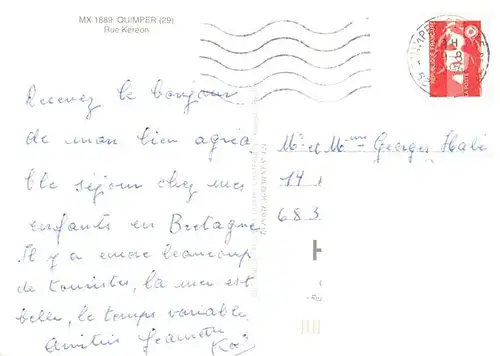 MX 1889 QUIMPER (29)
Rue Kéréon
Recevez le bonjour
de mon bien agréa
ble séjour chez mes
enfants en Bretagne
Il y a encore beaucoup
de touristes, la mer est
belle, le temps variable.
Amitiés Jeannette
Mr et Mme Georges Habi
14
683